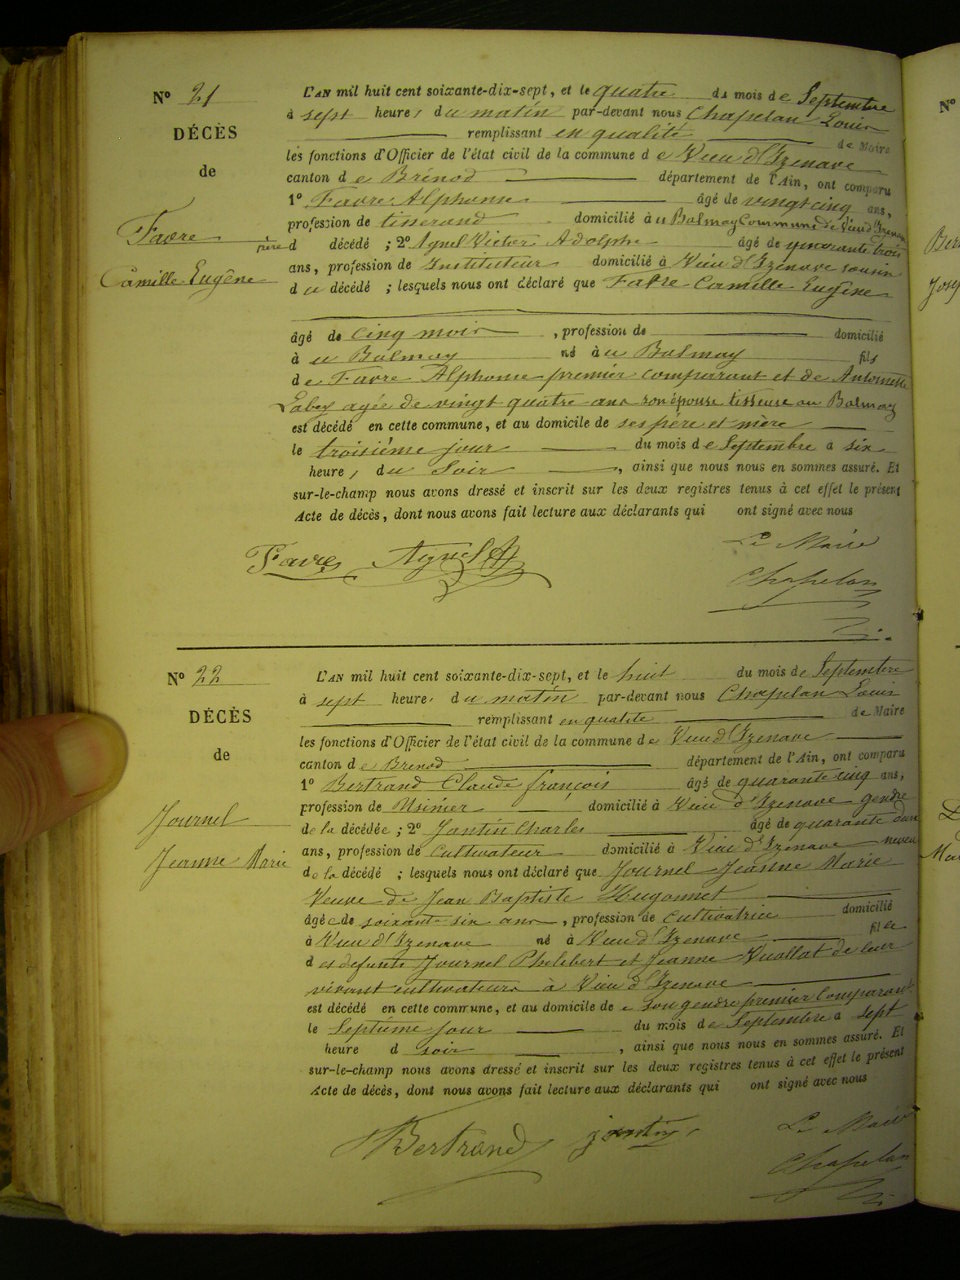 N° 21
DÉCÈS
de
Favre
Camille Eugène
L'AN mil huit cent soixante-dix-sept, et le quatre du mois de Septembre
à sept heures du matin par-devant nous Chapelan Louis
remplissant en qualité de Maire
les fonctions d'Officier de l'état civil de la commune de Vieu d'Izenave
canton de Brénod département de l'Ain, ont comparu
1° Favre Alphonse âgé de vingt cinq ans,
profession de tisserand domicilié à u Balmay Commune de Vieu d'Izenave
père d décédé ; 2° Agnel Victor Adolphe âgé de quarante trois
ans, profession de Instituteur domicilié à Vieu d'Izenave voisin
du décédé ; lesquels nous ont déclaré que Favre Camille Eugène
âgé de cinq mois , profession de domicilié
à u Balmay né à u Balmay fils
de Favre Alphonse premier comparant et de Antoinette
agée de vingt quatre ans son épouse tisseuse au Balmay
est décédé en cette commune, et au domicile de ses père et mère
le troisième jour du mois de Septembre à six
heures du Soir , ainsi que nous nous en sommes assuré. Et
sur-le-champ nous avons dressé et inscrit sur les deux registres tenus à cet effet le présent
Acte de décès, dont nous avons fait lecture aux déclarants qui ont signé avec nous
Le Maire
Favre Agnel A
Chapelan
N° 22
DÉCÈS
de
Journel
Jeanne Marie
L'AN mil huit cent soixante-dix-sept, et le huit du mois de Septembre
à sept heures du matin par-devant nous Chapelan Louis
remplissant en qualité de Maire
les fonctions d'Officier de l'état civil de la commune de Vieu d'Izenave
canton de Brenod département de l'Ain, ont comparu
1° Bertrand Claude françois âgé de quarante cinq ans,
profession de Usinier domicilié à Vieu d'Izenave gendre
de la décédée ; 2° Jantin Charles âgé de quarante deux
ans, profession de Cultivateur domicilié à Vieu d'Izenave neveu
de la décédé ; lesquels nous ont déclaré que Journel Jeanne Marie
Veuve de Jean Baptiste Hugonnet
âgée de soixante six ans , profession de Cultivatrice domicilié
à Vieu d'Izenave né à Vieu d'Izenave fille
des defunts Journel Philibert et Jeanne Vuollat de leur
vivant cultivateurs à Vieu d'Izenave
est décédé en cette commune, et au domicile de son gendre premier Comparant
le Septième jour du mois de Septembre à sept
heure d soir , ainsi que nous nous en sommes assuré. Et
sur-le-champ nous avons dressé et inscrit sur les deux registres tenus à cet effet le présent
Acte de décès, dont nous avons fait lecture aux déclarants qui ont signé avec nous
Le Maire
Bertrand jantin
Chapelan
N°